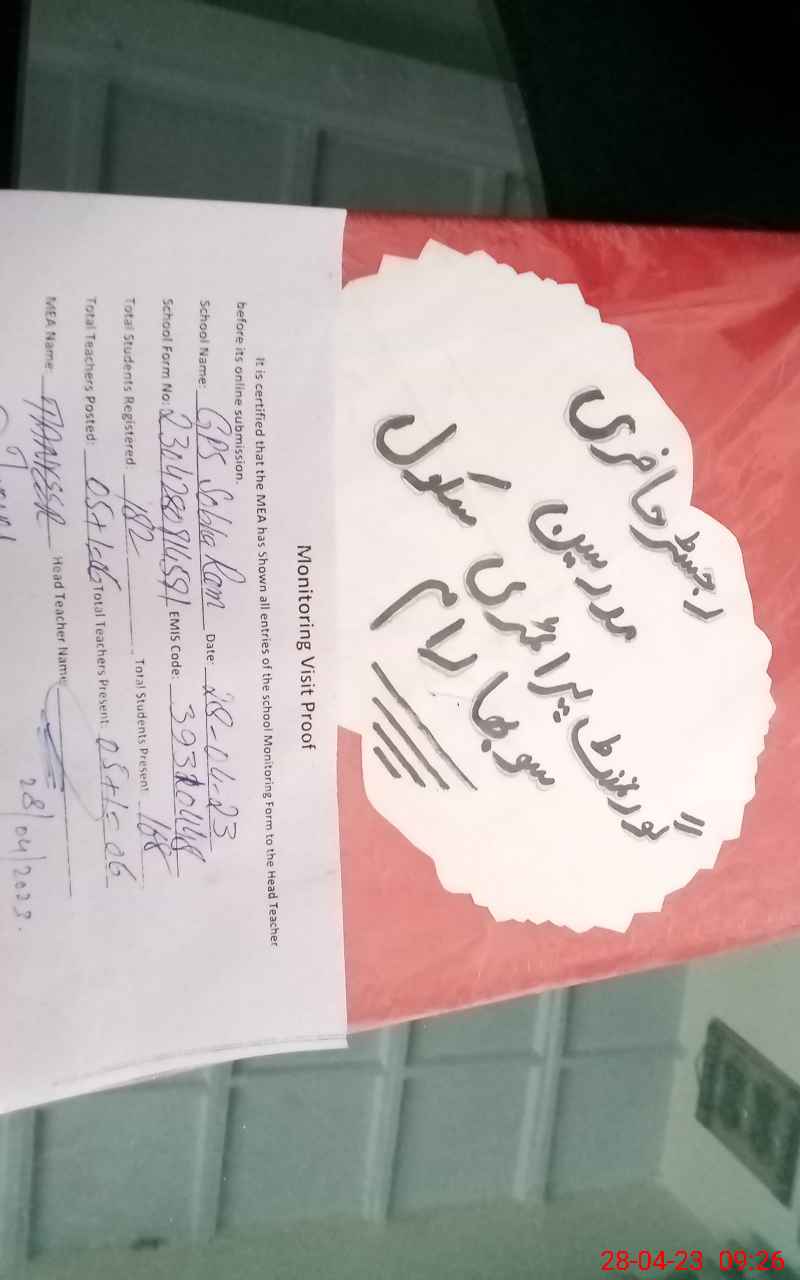 رجسٹر حاضری
مدرسین
گورنمنٹ پرائمری سکول
سوبھا رام
Monitoring Visit Proof
It is certified that the MEA has Shown all entries of the school Monitoring Form to the Head Teacher
before its online submission.
School Name: GPS Sobha Ram Date: 28-04-23
School Form No: EMIS Code:
Total Students Registered: 182 Total Students Present 168
Total Teachers Posted: 05+1=06 Total Teachers Present: 05+1=06
MEA Name: Head Teacher Name
28/04/2023.
28-04-23 09:26